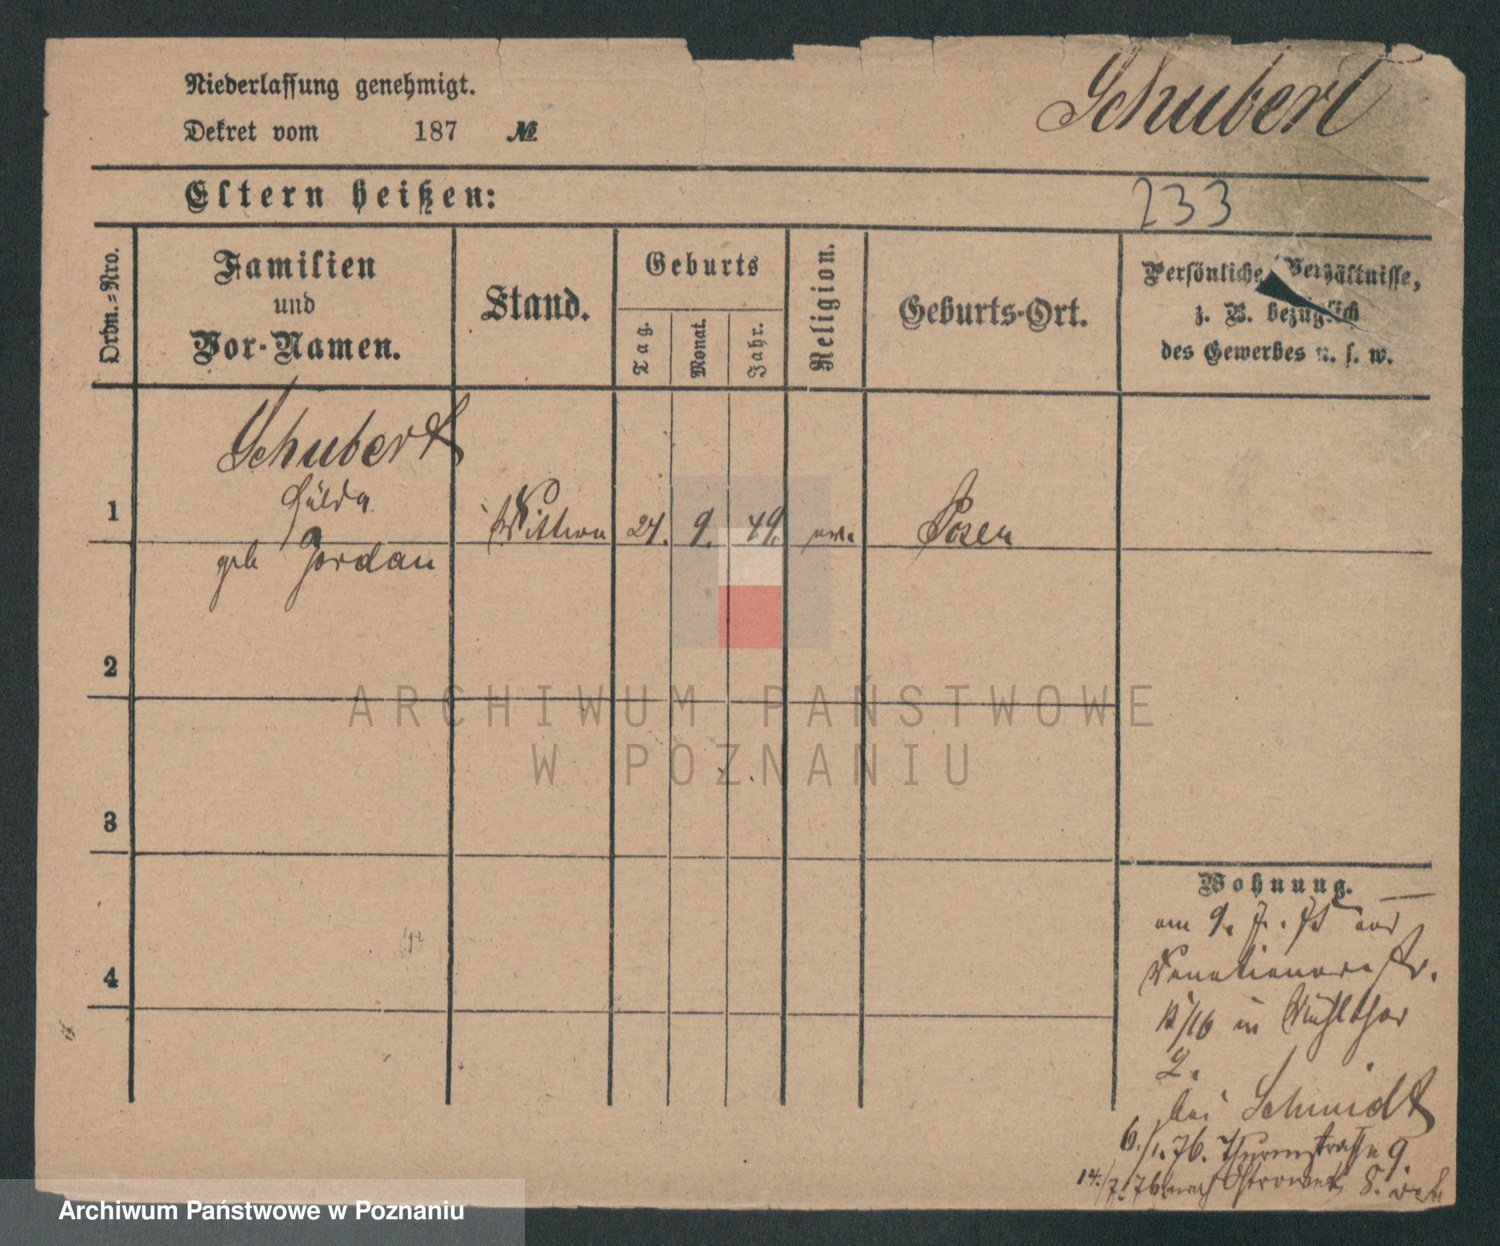 Niederlassung genehmigt.
Dekret vom 187 №
Schubert
Eltern heißen:
233
Ordn.=Nro.
Familien
und
Vor-Namen.
Stand.
Geburts
Tag.
Monat.
Jahr.
Religion.
Geburts-Ort.
Persönliche Verhältnisse,
z. B. bezüglich
des Gewerbes u. s. w.
Schubert
Hulda
1 Wittwe 24. 9. 49. ev. Posen
geb Jordan
2
3
4
Wohnung.
am 9. 7. 75 aus
Venetianerstr.
15/16 in Mühlthor
2.
bei Schmidt
6./1. 76. Thurmstrasse 9.
14./7. 76. nach Ostrowek 8.
ARCHIWUM PAŃSTWOWE
W POZNANIU
Archiwum Państwowe w Poznaniu